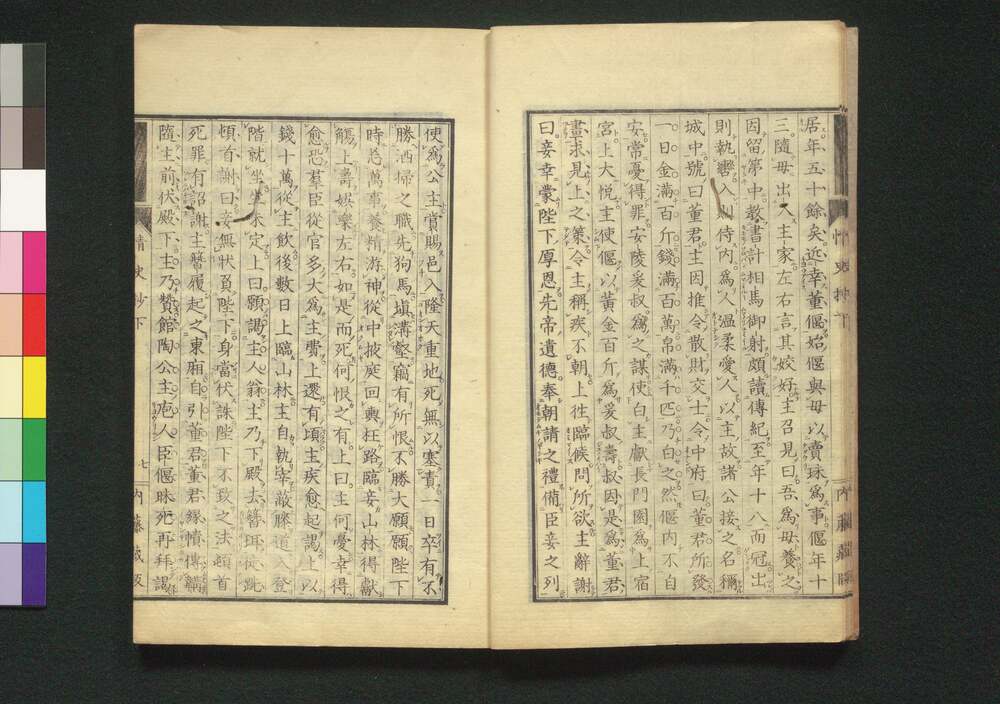 居年五十餘矣近幸董偃始偃與母以賣珠爲事偃年十
三隨母出入主家左右言其姣好主召見曰吾爲母養之
因留第中敎書計相馬御射頗讀傳紀至年十八而冠出
則執轡入則侍内爲人溫柔愛人以主故諸公接之名稱
城中號曰董君主因推令散財交士令中府曰董君所發
一日金滿百斤錢滿百萬帛滿千匹乃白之然偃内不自
安常憂得罪安陵爰叔爲之謀使白主獻長門園爲上宿
宮上大悅主使偃以黃金百斤爲爰叔壽叔因是爲董君
畫求見上之策令主稱疾不朝上徃臨候問所欲主辭謝
曰妾幸蒙陛下厚恩先帝遺德奉朝請之禮備臣妾之列
便爲公主賞賜邑入隆天重地死無以塞責一日卒有不
勝洒掃之職先狗馬塡溝壑竊有所恨不勝大願願陛下
時忘萬事養精游神從中掖庭回輿枉路臨妾山林得獻
觴上壽娛樂左右如是而死何恨之有上曰主何憂幸得
愈恐羣臣從官多大爲主費上還有頃主疾愈起謁上以
錢十萬從主飲後數日上臨山林主自執宰蔽膝道入登
階就坐坐未定上曰願謁主人翁主乃下殿去簪珥徒跣
頓首謝曰妾無狀負陛下身當伏誅陛下不致之法頓首
死罪有詔謝主簪履起之東廂自引董君董君綠幘傅韝
隨主前伏殿下主乃贊館陶公主庖人臣偃昧死再拜謁
情史抄下
七
内藤藏版